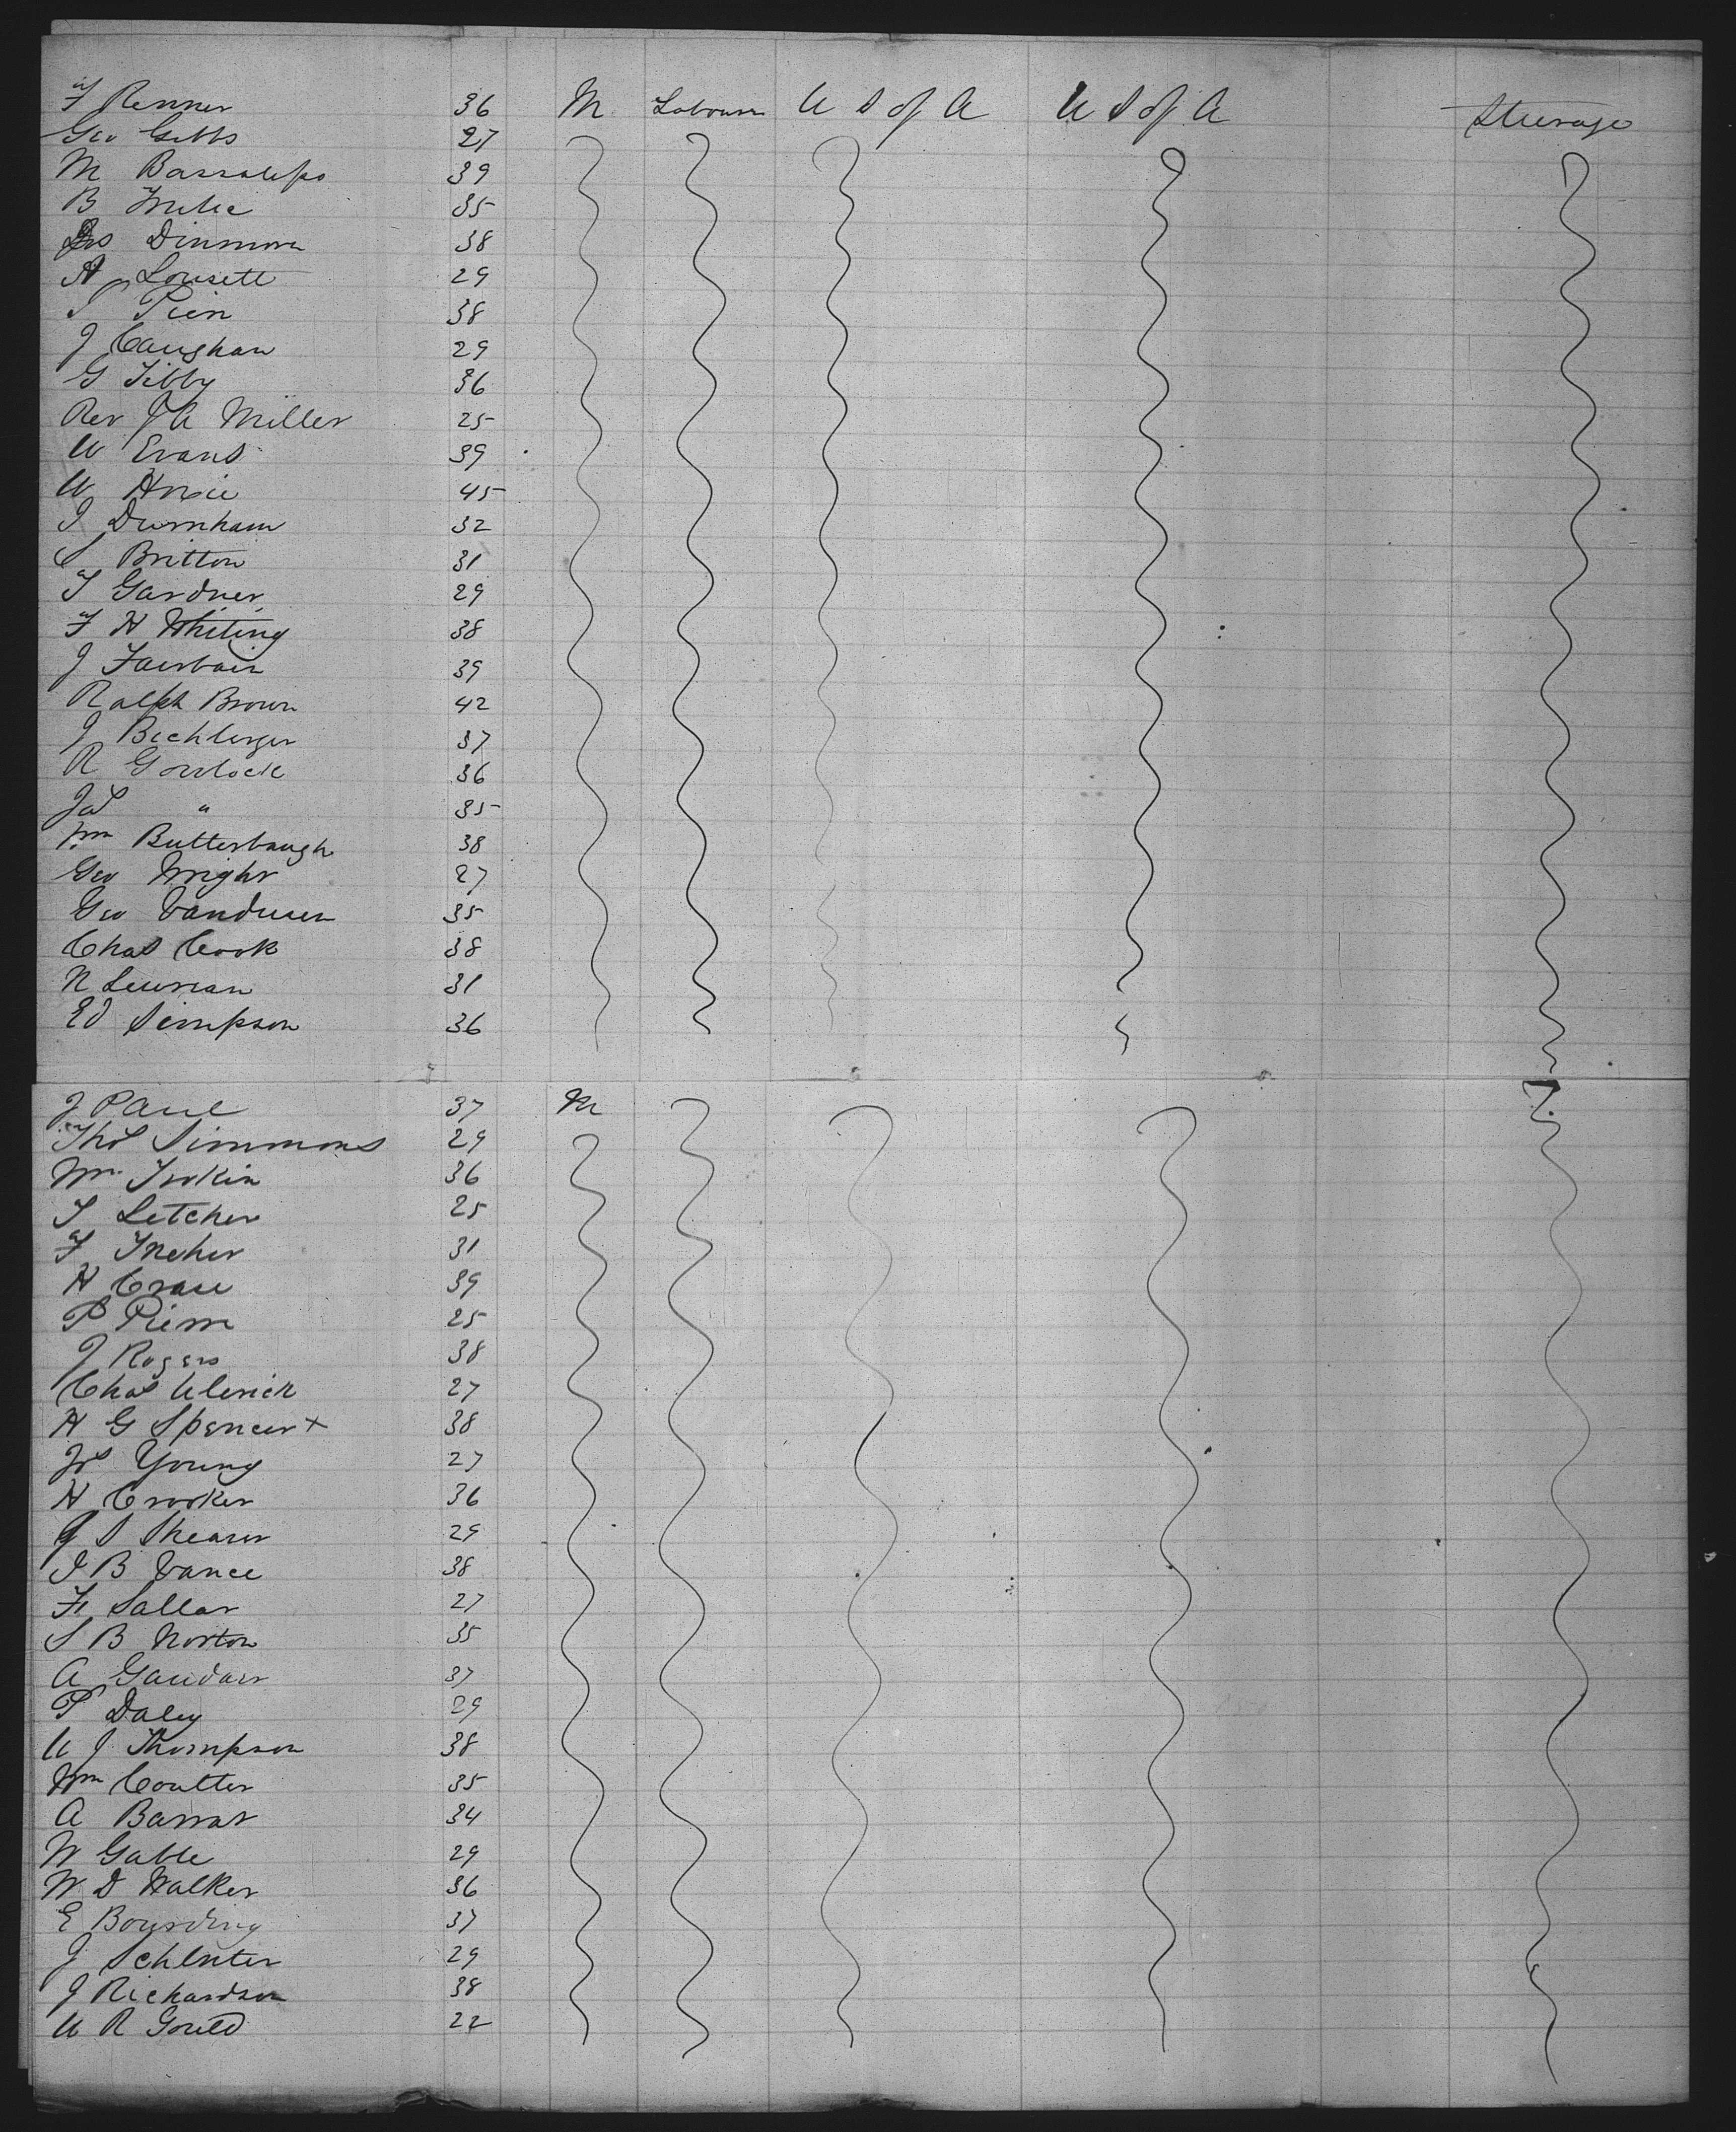 F Renner 36 M Labourer U S of A U S of A Steerage
Geo Gibbs 27
M 39
B 35
Dinsmore 38
A Lousett 29
Pien 38
J Caughan 29
G Tibby 36
Rev J A Miller 25
W Evans 39
W Hoxie 45
J Durnham 32
S Britton 31
T Gardner 29
F H Whiting 38
J Fairbair 39
Ralph Brown 42
J Bechlerger 37
R Gowlock 36
Jas " 35
Wm Butterbaugh 38
Geo Wright 27
Geo Vandusen 35
Chas Cook 38
N 31
Ed Simpson 36
J Paul 37 M
Thos Simmons 29
Wm 36
T Letcher 25
F 31
H Crase 39
P Pierre 25
J Rogers 38
Chas Ulerick 27
H G Spencer + 38
Js Young 27
H Crooker 36
J S Shearer 29
J B Vance 38
Fr Sallar 27
S B Norton 35
A 37
P Daley 29
W J Thompson 38
Wm Coulter 35
A Barrar 34
W Gable 29
W D Walker 36
E 37
J Schluter 29
J Richardson 38
W R Gould 22